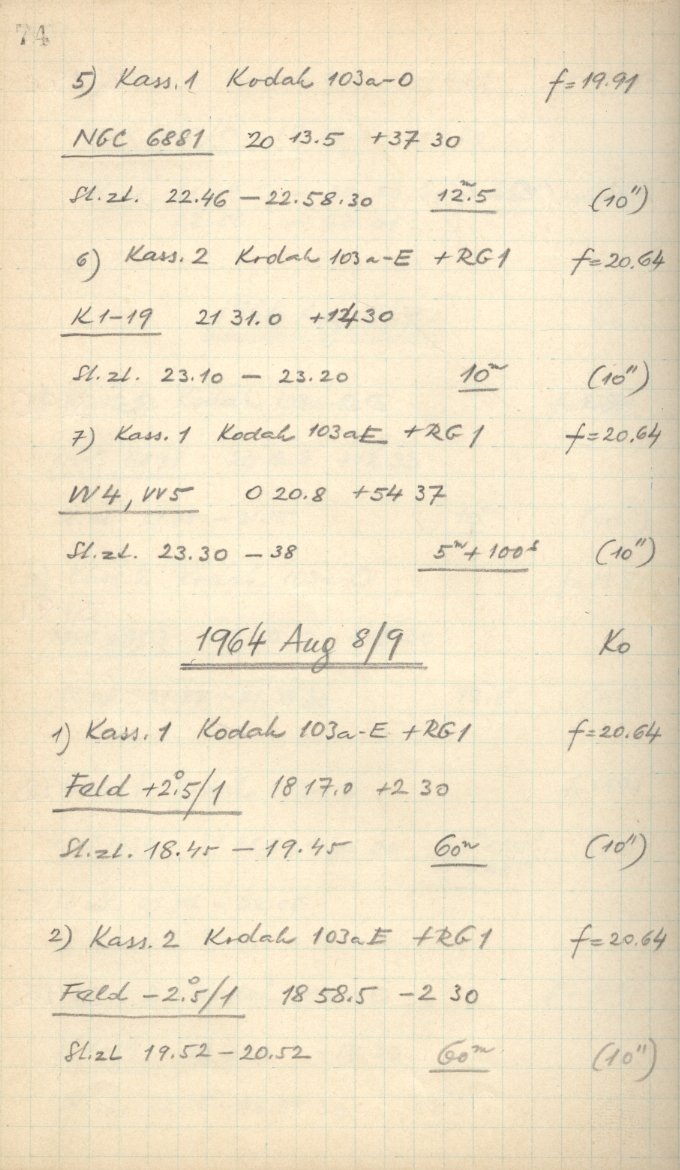 74
5) Kass. 1 Kodak 103a-O f=19.91
NGC 6881 20 13.5 +37 30
St.zt. 22.46 – 22.58.30 12ᵐ.5 (10")
6) Kass. 2 Kodak 103a-E +RG1 f=20.64
K1-19 21 31.0 +12430
St.zt. 23.10 – 23.20 10ᵐ (10")
7) Kass. 1 Kodak 103aE +RG1 f=20.64
VV4, VV5 0 20.8 +54 37
St.zt. 23.30 – 38 5ᵐ+100ˢ (10")
1964 Aug 8/9 Ko
1) Kass. 1 Kodak 103a-E +RG1 f=20.64
Feld +2°.5/1 18 17.0 +2 30
St.zt. 18.45 – 19.45 60ᵐ (10")
2) Kass. 2 Kodak 103aE +RG1 f=20.64
Feld –2°.5/1 18 58.5 –2 30
St.zt 19.52 – 20.52 60ᵐ (10")